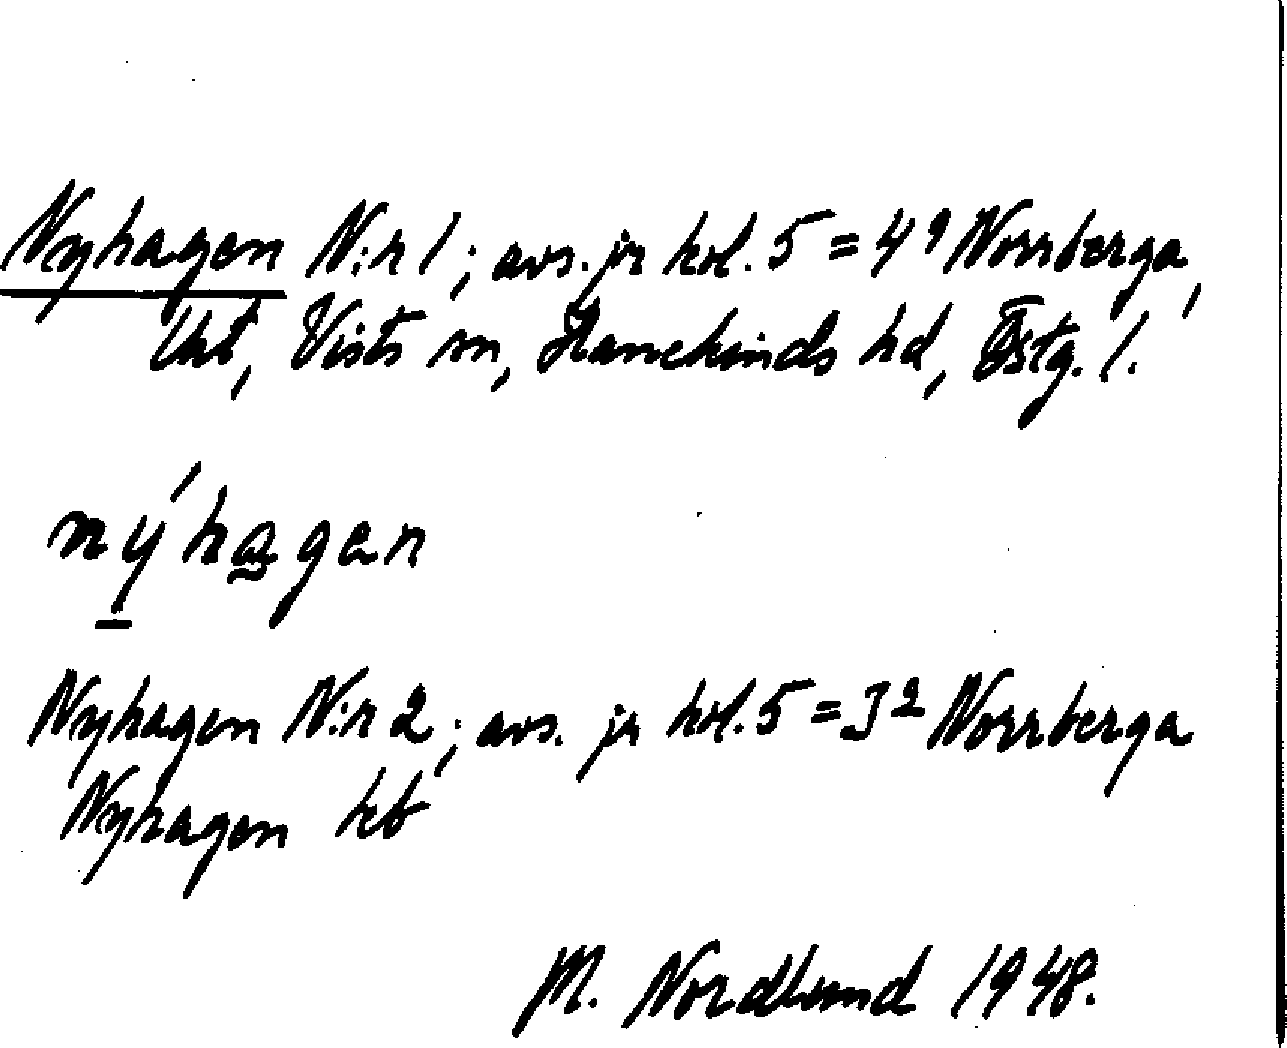 Nyhagen N:r 1; avs. jr hd. 5 = 4⁹ Norrberga,
Uht, Vists sn, Hanekinds hd, Östg. l.
nýhagen
Nyhagen N:r 2; avs. jr hd. 5 = J² Norrberga
Nyhagen kb
M. Nordlund 1948.